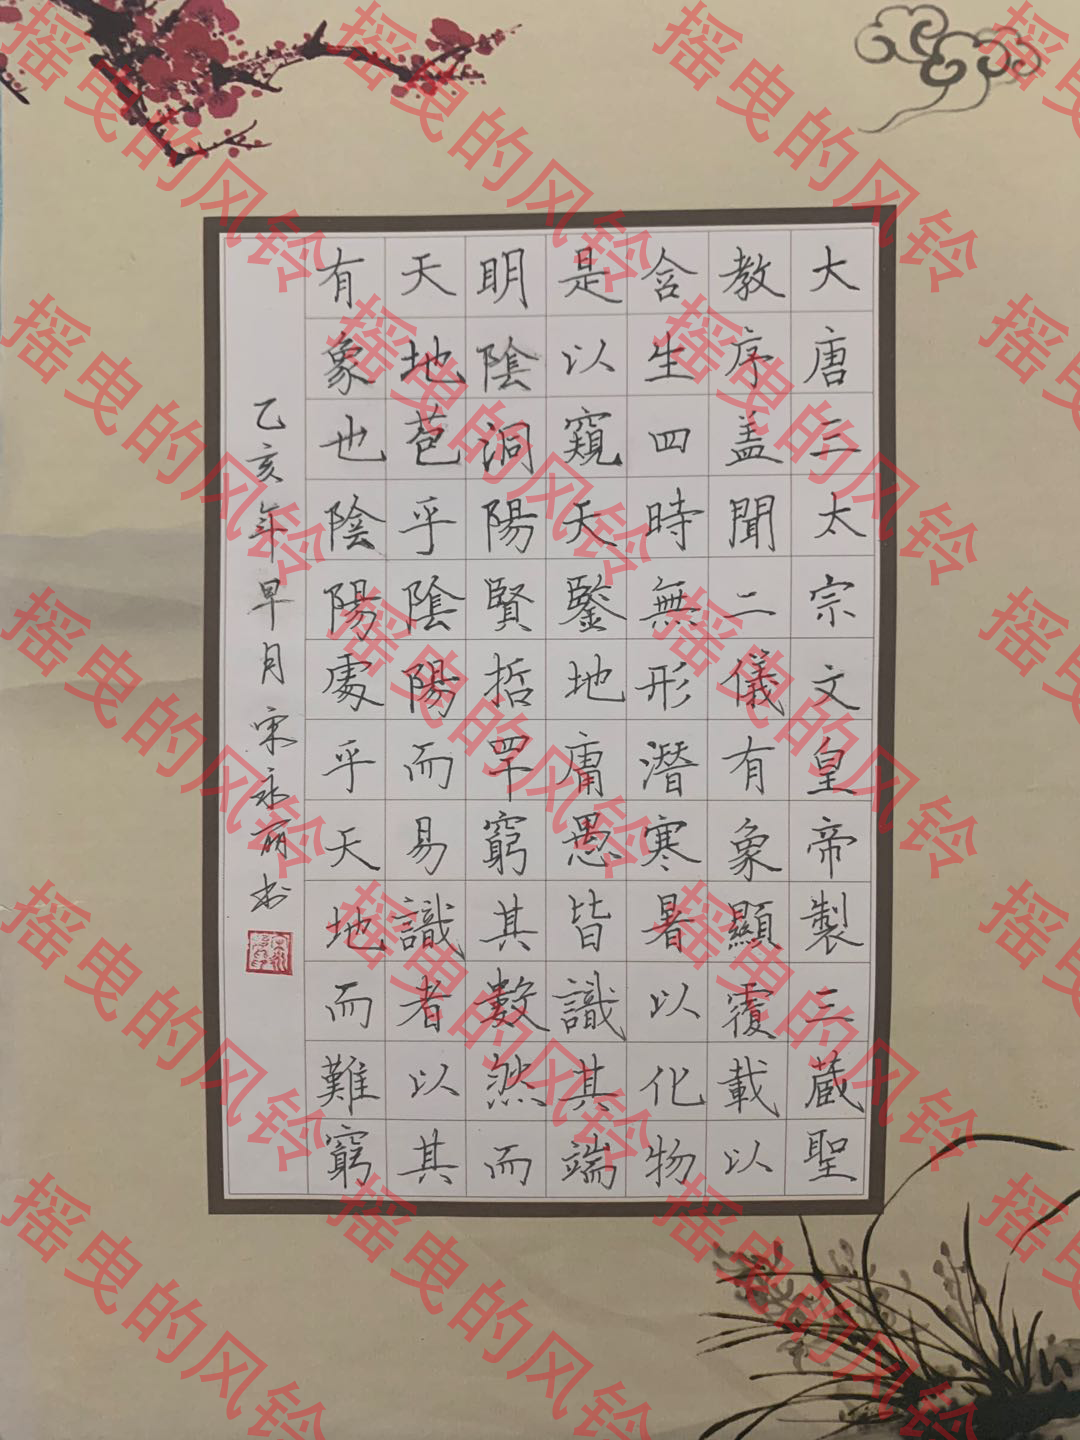 大唐三太宗文皇帝製三蔵聖
教序盖聞二儀有象顯覆載以
含生四時無形潛寒暑以化物
是以窺天鑒地庸愚皆識其端
明陰洞陽賢哲罕窮其數然而
天地苞乎陰陽而易識者以其
有象也陰陽處乎天地而難窮
乙亥年早月宋永丽书
摇曳的风铃